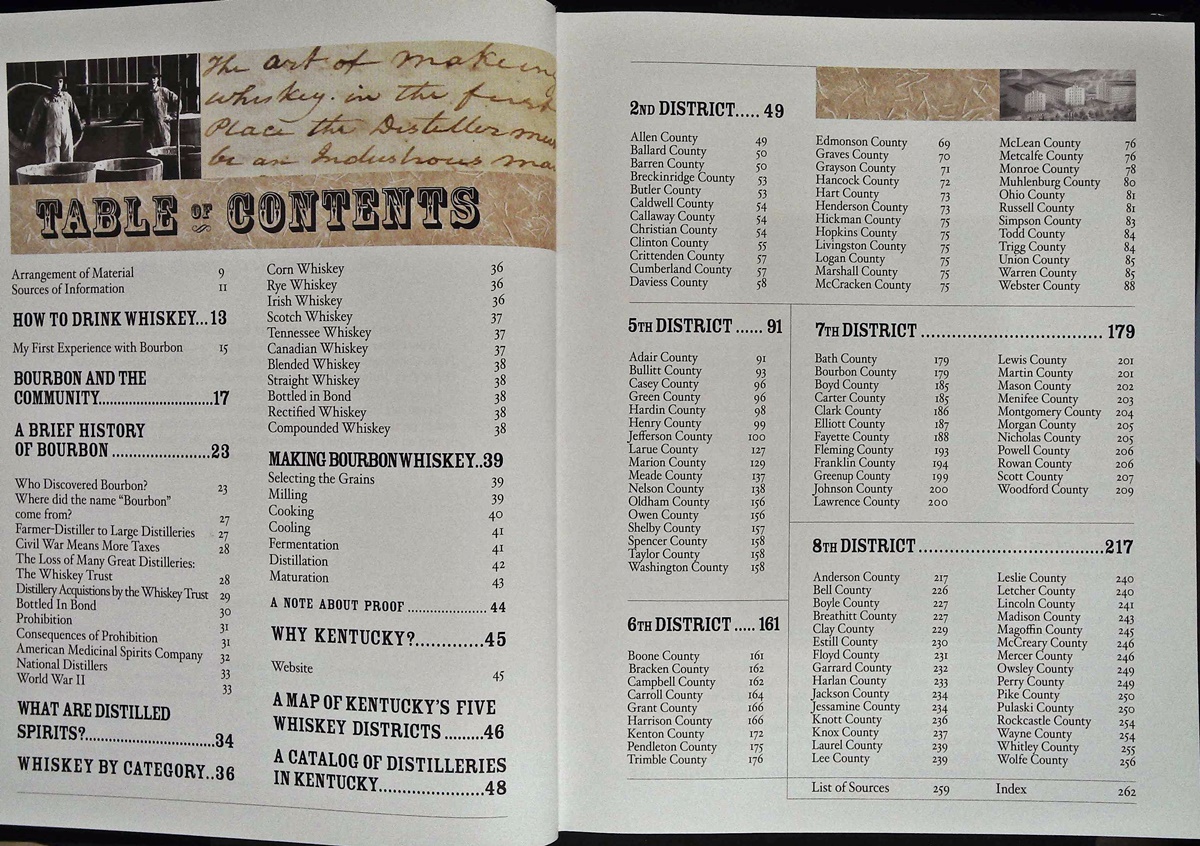 The art of makeing
whiskey. in the first
Place the Distiller mus
be an Industrous ma
TABLE OF CONTENTS
Arrangement of Material 9
Sources of Information 11
HOW TO DRINK WHISKEY...13
My First Experience with Bourbon 15
BOURBON AND THE
COMMUNITY......................17
A BRIEF HISTORY
OF BOURBON ......................23
Who Discovered Bourbon? 23
Where did the name “Bourbon”
come from? 27
Farmer-Distiller to Large Distilleries 27
Civil War Means More Taxes 28
The Loss of Many Great Distilleries:
The Whiskey Trust 28
Distillery Acquistions by the Whiskey Trust 29
Bottled In Bond 30
Prohibition 31
Consequences of Prohibition 31
American Medicinal Spirits Company 32
National Distillers 33
World War II 33
WHAT ARE DISTILLED
SPIRITS?.........................34
WHISKEY BY CATEGORY..36
Corn Whiskey 36
Rye Whiskey 36
Irish Whiskey 36
Scotch Whiskey 37
Tennessee Whiskey 37
Canadian Whiskey 37
Blended Whiskey 38
Straight Whiskey 38
Bottled in Bond 38
Rectified Whiskey 38
Compounded Whiskey 38
MAKING BOURBON WHISKEY..39
Selecting the Grains 39
Milling 39
Cooking 40
Cooling 41
Fermentation 41
Distillation 42
Maturation 43
A NOTE ABOUT PROOF ................ 44
WHY KENTUCKY?..............45
Website 45
A MAP OF KENTUCKY'S FIVE
WHISKEY DISTRICTS ........46
A CATALOG OF DISTILLERIES
IN KENTUCKY.....................48
2ND DISTRICT..... 49
Allen County 49
Ballard County 50
Barren County 50
Breckinridge County 53
Butler County 53
Caldwell County 54
Callaway County 54
Christian County 54
Clinton County 55
Crittenden County 57
Cumberland County 57
Daviess County 58
Edmonson County 69
Graves County 70
Grayson County 71
Hancock County 72
Hart County 73
Henderson County 73
Hickman County 75
Hopkins County 75
Livingston County 75
Logan County 75
Marshall County 75
McCracken County 75
McLean County 76
Metcalfe County 76
Monroe County 78
Muhlenburg County 80
Ohio County 81
Russell County 81
Simpson County 83
Todd County 84
Trigg County 84
Union County 85
Warren County 85
Webster County 88
5TH DISTRICT ...... 91
Adair County 91
Bullitt County 93
Casey County 96
Green County 96
Hardin County 98
Henry County 99
Jefferson County 100
Larue County 127
Marion County 129
Meade County 137
Nelson County 138
Oldham County 156
Owen County 156
Shelby County 157
Spencer County 158
Taylor County 158
Washington County 158
6TH DISTRICT ..... 161
Boone County 161
Bracken County 162
Campbell County 162
Carroll County 164
Grant County 166
Harrison County 166
Kenton County 172
Pendleton County 175
Trimble County 176
7TH DISTRICT .................................. 179
Bath County 179
Bourbon County 179
Boyd County 185
Carter County 185
Clark County 186
Elliott County 187
Fayette County 188
Fleming County 193
Franklin County 194
Greenup County 199
Johnson County 200
Lawrence County 200
Lewis County 201
Martin County 201
Mason County 202
Menifee County 203
Montgomery County 204
Morgan County 205
Nicholas County 205
Powell County 206
Rowan County 206
Scott County 207
Woodford County 209
8TH DISTRICT ..................................217
Anderson County 217
Bell County 226
Boyle County 227
Breathitt County 227
Clay County 229
Estill County 230
Floyd County 231
Garrard County 232
Harlan County 233
Jackson County 234
Jessamine County 234
Knott County 236
Knox County 237
Laurel County 239
Lee County 239
Leslie County 240
Letcher County 240
Lincoln County 241
Madison County 243
Magoffin County 245
McCreary County 246
Mercer County 246
Owsley County 249
Perry County 249
Pike County 250
Pulaski County 250
Rockcastle County 254
Wayne County 254
Whitley County 255
Wolfe County 256
List of Sources 259
Index 262